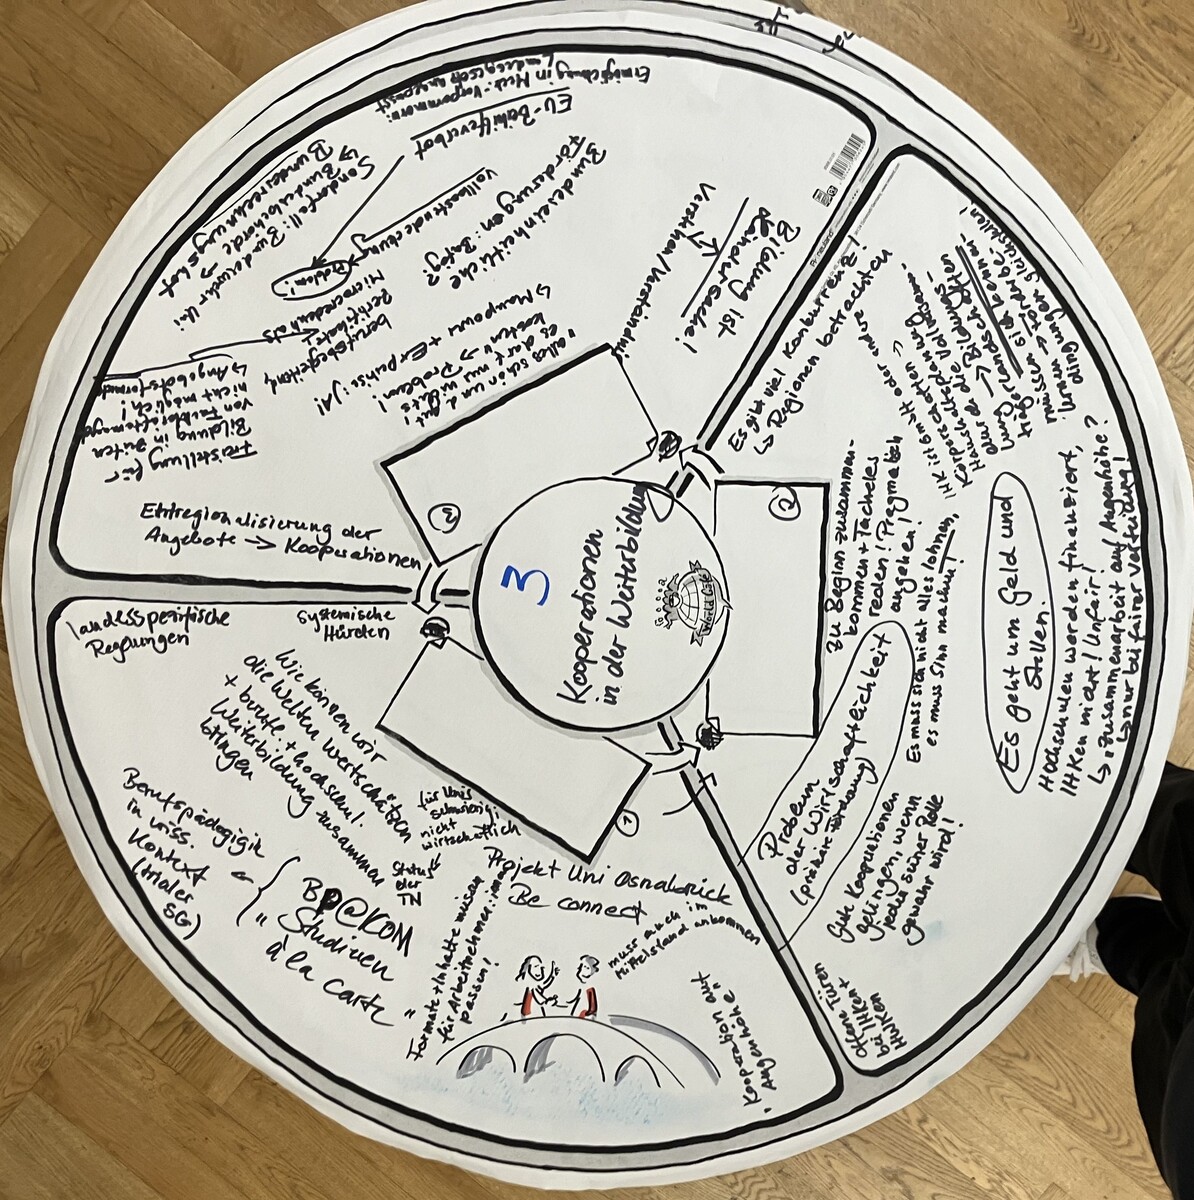 3
Kooperationen
in der Weiterbildung
World Café
1
landesspezifische
Regelungen
systemische
Hürden
Wie können wir
die Welten wertschätzen
+ berufl. + hochschul.
Weiterbildung zusammen
bringen
Berufspädagogik
in wiss.
Kontext
(trialer
SG)
BP@KOM
"Studieren
à la carte"
für Unis
schwierig:
nicht
wirtschaftlich
Status
der
TN
Projekt Uni Osnabrück
Be connect
Formate + Inhalte müssen
für Arbeitnehmer:innen
passen!
muss auch im
Mittelstand ankommen
"Kooperation auf
Augenhöhe"
2
Es gibt viel Konkurrenz!
↳ Regionen betrachten
IHK ist
Körperschaften
Bildungs-
müssen → Förderbe-
dingungen gleichstellen!
zu Beginn zusammen-
kommen + Tacheles
reden! Pragmatisch
angehen!
Es muss sich nicht alles lohnen,
es muss Sinn machen!
Es geht um Geld und
Stellen.
Hochschulen werden finanziert,
IHKen nicht! Unfair!
↳ "Zusammenarbeit auf Augenhöhe?
↳ nur bei fairer Verteilung!
Problem
der Wirtschaftlichkeit
(private Förderung)
Gute Kooperationen
gelingen, wenn
jedes seiner Rolle
gewahr wird!
offene Türen
bei IHKen +
HWKen
3
Bildung ist
Ländersache!
Verstehen/Verständnis
Ermöglichung in Meck-Vorpommern:
Landesgesetz angepasst
EU-Beihilfeverbot
Bundeseinheitliche
Förderungen: Bafög?
Vollkostendeckung
Problem!
Sonderfall: Bundeswehr Uni
↳ Bundesbehörde →
Bundesrechnungshof
"alles schön und gut
es darf nur nichts
kosten" → Problem!
↳ Manpower + Expertise: JA!
berufsbegleitend,
Zertifikate,
Microcredentials
↳ Angebotsformate
nicht möglich!
Freistellung für
Bildung in Zeiten
von Fachkräftemangel
Entregionalisierung der
Angebote → Kooperationen